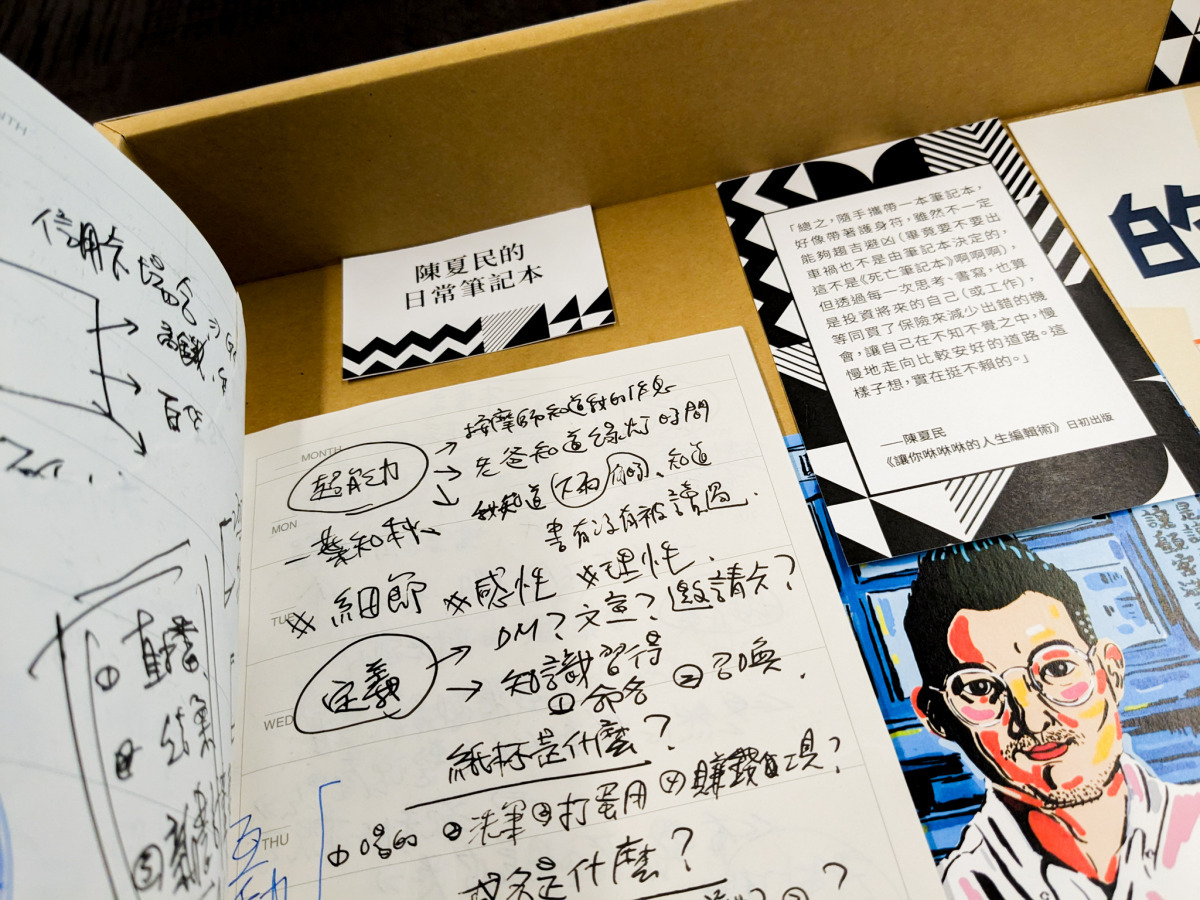 陳夏民的
日常筆記本
「總之，隨手攜帶一本筆記本，
好像帶著護身符，雖然不一定
能夠趨吉避凶（畢竟要不要出
車禍也不是由筆記本決定的，
這不是《死亡筆記本》啊啊啊），
但透過每一次思考、書寫，也算
是投資將來的自己（或工作），
等同買了保險來減少出錯的機
會，讓自己在不知不覺之中，慢
慢地走向比較安好的道路。這
樣子想，實在挺不賴的。」
──陳夏民
《讓你咻咻咻的人生編輯術》日初出版
的
NTH
信用卡
①直播
②
③
MONTH
超能力
→按摩師知道我的作息
→老爸知道綠灯时間
我知道下雨、知道
書有沒有被讀過.
MON
一葉知秋
TUE
※細節 ※感性 ※理性.
定義
→DM？文宣？邀請久？
→知識習得
①命名 ②召喚.
WED
紙杯是什麼？
THU
①喝的 ②洗筆③打蛋用④賺錢道具？
互動
是什麼？